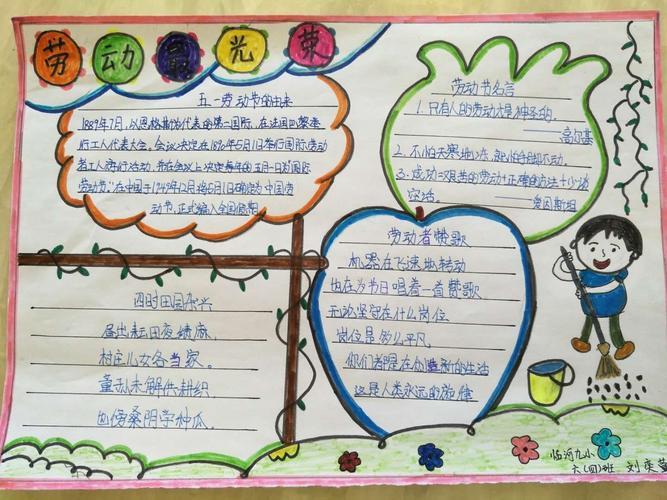 劳动最光荣
五一劳动节的由来
1889年7月,以恩格斯为代表的第二国际,在法国巴黎举
行工人代表大会,会议决定在1890年5月1日举行国际劳动
者工人游行活动,并在会议上决定每年的五月一日为国际
劳动节,在中国于1949年12月将5月1日的定为中国劳
动节,正式编入全国假期
劳动节名言
1.只有人的劳动才是神圣的.
——高尔基
2.不怕天寒地冻,就怕手脚不动.
3.成功=艰苦的劳动+正确的方法+少谈
空话.
——爱因斯坦
劳动者赞歌
机器在飞速地转动
也在为节日唱着一首赞歌
无论坚守在什么岗位
岗位是多么平凡,
你们都是在创造新的生活
这是人类永远的旋律
四时田园杂兴
昼出耘田夜绩麻,
村庄儿女各当家.
童孙未解供耕织,
也傍桑阴学种瓜.
临河九小
六(四)班 刘奕萱